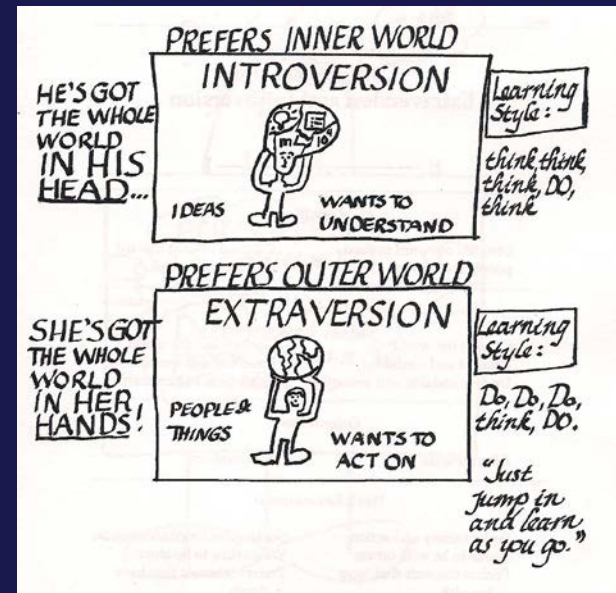 PREFERS INNER WORLD
INTROVERSION
HE'S GOT
THE WHOLE
WORLD
IN HIS
HEAD...
IDEAS
WANTS TO
UNDERSTAND
Learning
Style:
think, think,
think, DO,
think
PREFERS OUTER WORLD
EXTRAVERSION
SHE'S GOT
THE WHOLE
WORLD
IN HER
HANDS!
PEOPLE &
THINGS
WANTS TO
ACT ON
Learning
Style:
Do, Do, Do,
think, DO.
"Just
Jump in
and learn
as you go."